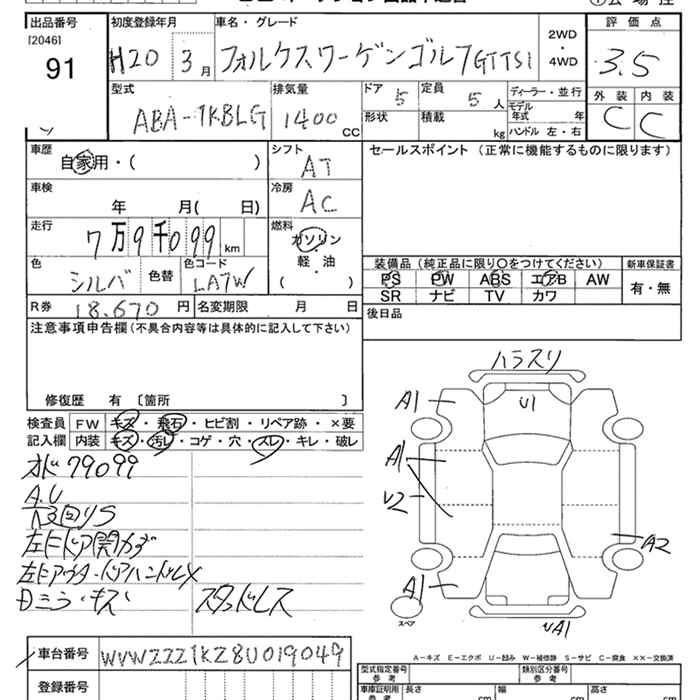 出品番号
[2046]
91
初度登録年月
H20 3 月
車名・グレード
フォルクスワーゲンゴルフGTTSI
2WD
・
4WD
評価点
3.5
外装 内装
C C
型式
ABA-1KBLG
排気量
1400 CC
ドア 5
定員 5 人
形状
積載 kg
ディーラー・並行
モデル年式 年
ハンドル 左・右
車歴
自家用・( )
シフト
AT
セールスポイント (正常に機能するものに限ります)
車検
年 月( 日)
冷房
AC
走行
7万9千099 km
燃料
ガソリン
軽・油
( )
色
シルバ
色替
色コード
LA7W
装備品(純正品に限り○をつけてください)
PS PW ABS エアB AW
SR ナビ TV カワ
新車保証書
有・無
R券 18.670 円
名変期限 月 日
後日品
注意事項申告欄(不具合内容等は具体的に記入して下さい)
修復歴 有 〔箇所 〕
検査員記入欄
FW キズ・飛石・ヒビ割・リペア跡・×要
内装 キズ・汚レ・コゲ・穴・スレ・キレ・破レ
オド79099
左Fドア開カズ
左Fアウタードアハンドル×
スタッドレス
ハラスリ
A1
U1
A1
U2
A2
A1
UA1
スペア
A-キズ E-エクボ U-凹み W-補修跡 S-サビ C-腐食 ××-交換済
車台番号 WVWZZZ1KZ8U019049
登録番号
型式指定番号
参考
類別区分番号
参考
車庫証明用
参考
長さ cm
幅 cm
高さ cm